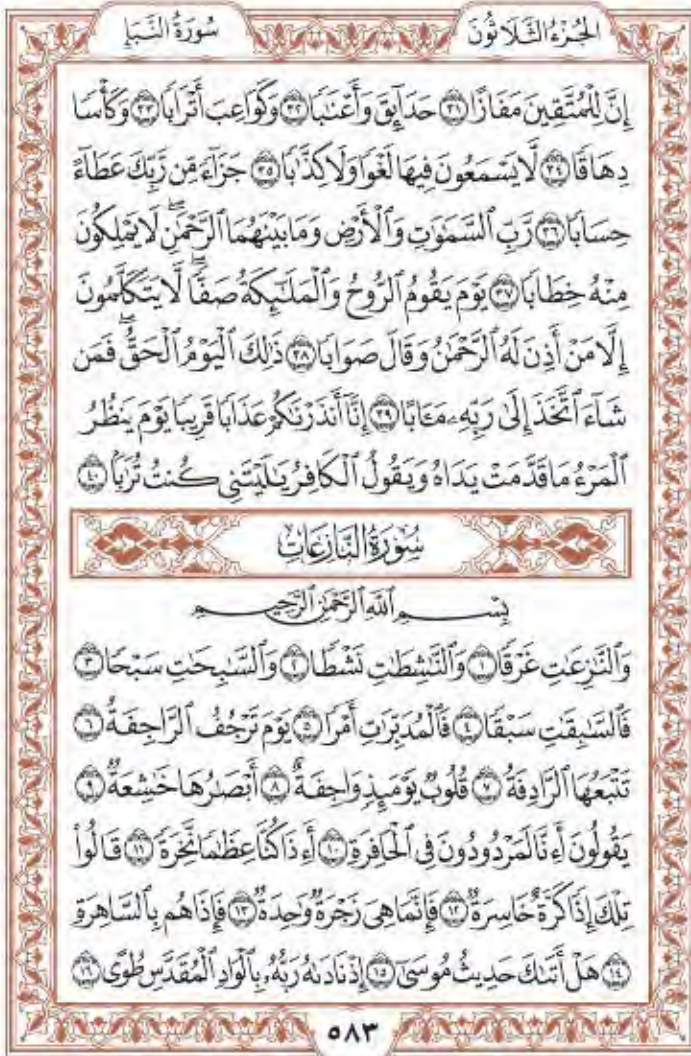 سُورَةُ النَّبَإِ
الجُزْءُ الثَّلَاثُونَ
إِنَّ لِلْمُتَّقِينَ مَفَازًا ٣١ حَدَآئِقَ وَأَعْنَٰبًا ٣٢ وَكَوَاعِبَ أَتْرَابًا ٣٣ وَكَأْسًا
دِهَاقًا ٣٤ لَّا يَسْمَعُونَ فِيهَا لَغْوًا وَلَا كِذَّٰبًا ٣٥ جَزَآءً مِّن رَّبِّكَ عَطَآءً
حِسَابًا ٣٦ رَّبِّ ٱلسَّمَٰوَٰتِ وَٱلْأَرْضِ وَمَا بَيْنَهُمَا ٱلرَّحْمَٰنِۖ لَا يَمْلِكُونَ
مِنْهُ خِطَابًا ٣٧ يَوْمَ يَقُومُ ٱلرُّوحُ وَٱلْمَلَٰٓئِكَةُ صَفًّاۖ لَّا يَتَكَلَّمُونَ
إِلَّا مَنْ أَذِنَ لَهُ ٱلرَّحْمَٰنُ وَقَالَ صَوَابًا ٣٨ ذَٰلِكَ ٱلْيَوْمُ ٱلْحَقُّۖ فَمَن
شَآءَ ٱتَّخَذَ إِلَىٰ رَبِّهِۦ مَـَٔابًا ٣٩ إِنَّآ أَنذَرْنَٰكُمْ عَذَابًا قَرِيبًا يَوْمَ يَنظُرُ
ٱلْمَرْءُ مَا قَدَّمَتْ يَدَاهُ وَيَقُولُ ٱلْكَافِرُ يَٰلَيْتَنِى كُنتُ تُرَٰبًۢا ٤٠
سُورَةُ النَّازِعَاتِ
بِسْمِ ٱللَّهِ ٱلرَّحْمَٰنِ ٱلرَّحِيمِ
وَٱلنَّٰزِعَٰتِ غَرْقًا ١ وَٱلنَّٰشِطَٰتِ نَشْطًا ٢ وَٱلسَّٰبِحَٰتِ سَبْحًا ٣
فَٱلسَّٰبِقَٰتِ سَبْقًا ٤ فَٱلْمُدَبِّرَٰتِ أَمْرًا ٥ يَوْمَ تَرْجُفُ ٱلرَّاجِفَةُ ٦
تَتْبَعُهَا ٱلرَّادِفَةُ ٧ قُلُوبٌ يَوْمَئِذٍ وَاجِفَةٌ ٨ أَبْصَٰرُهَا خَٰشِعَةٌ ٩
يَقُولُونَ أَءِنَّا لَمَرْدُودُونَ فِى ٱلْحَافِرَةِ ١٠ أَءِذَا كُنَّا عِظَٰمًا نَّخِرَةً ١١ قَالُوا۟
تِلْكَ إِذًا كَرَّةٌ خَاسِرَةٌ ١٢ فَإِنَّمَا هِىَ زَجْرَةٌ وَٰحِدَةٌ ١٣ فَإِذَا هُم بِٱلسَّاهِرَةِ
١٤ هَلْ أَتَىٰكَ حَدِيثُ مُوسَىٰٓ ١٥ إِذْ نَادَىٰهُ رَبُّهُۥ بِٱلْوَادِ ٱلْمُقَدَّسِ طُوًى ١٦
٥٨٣